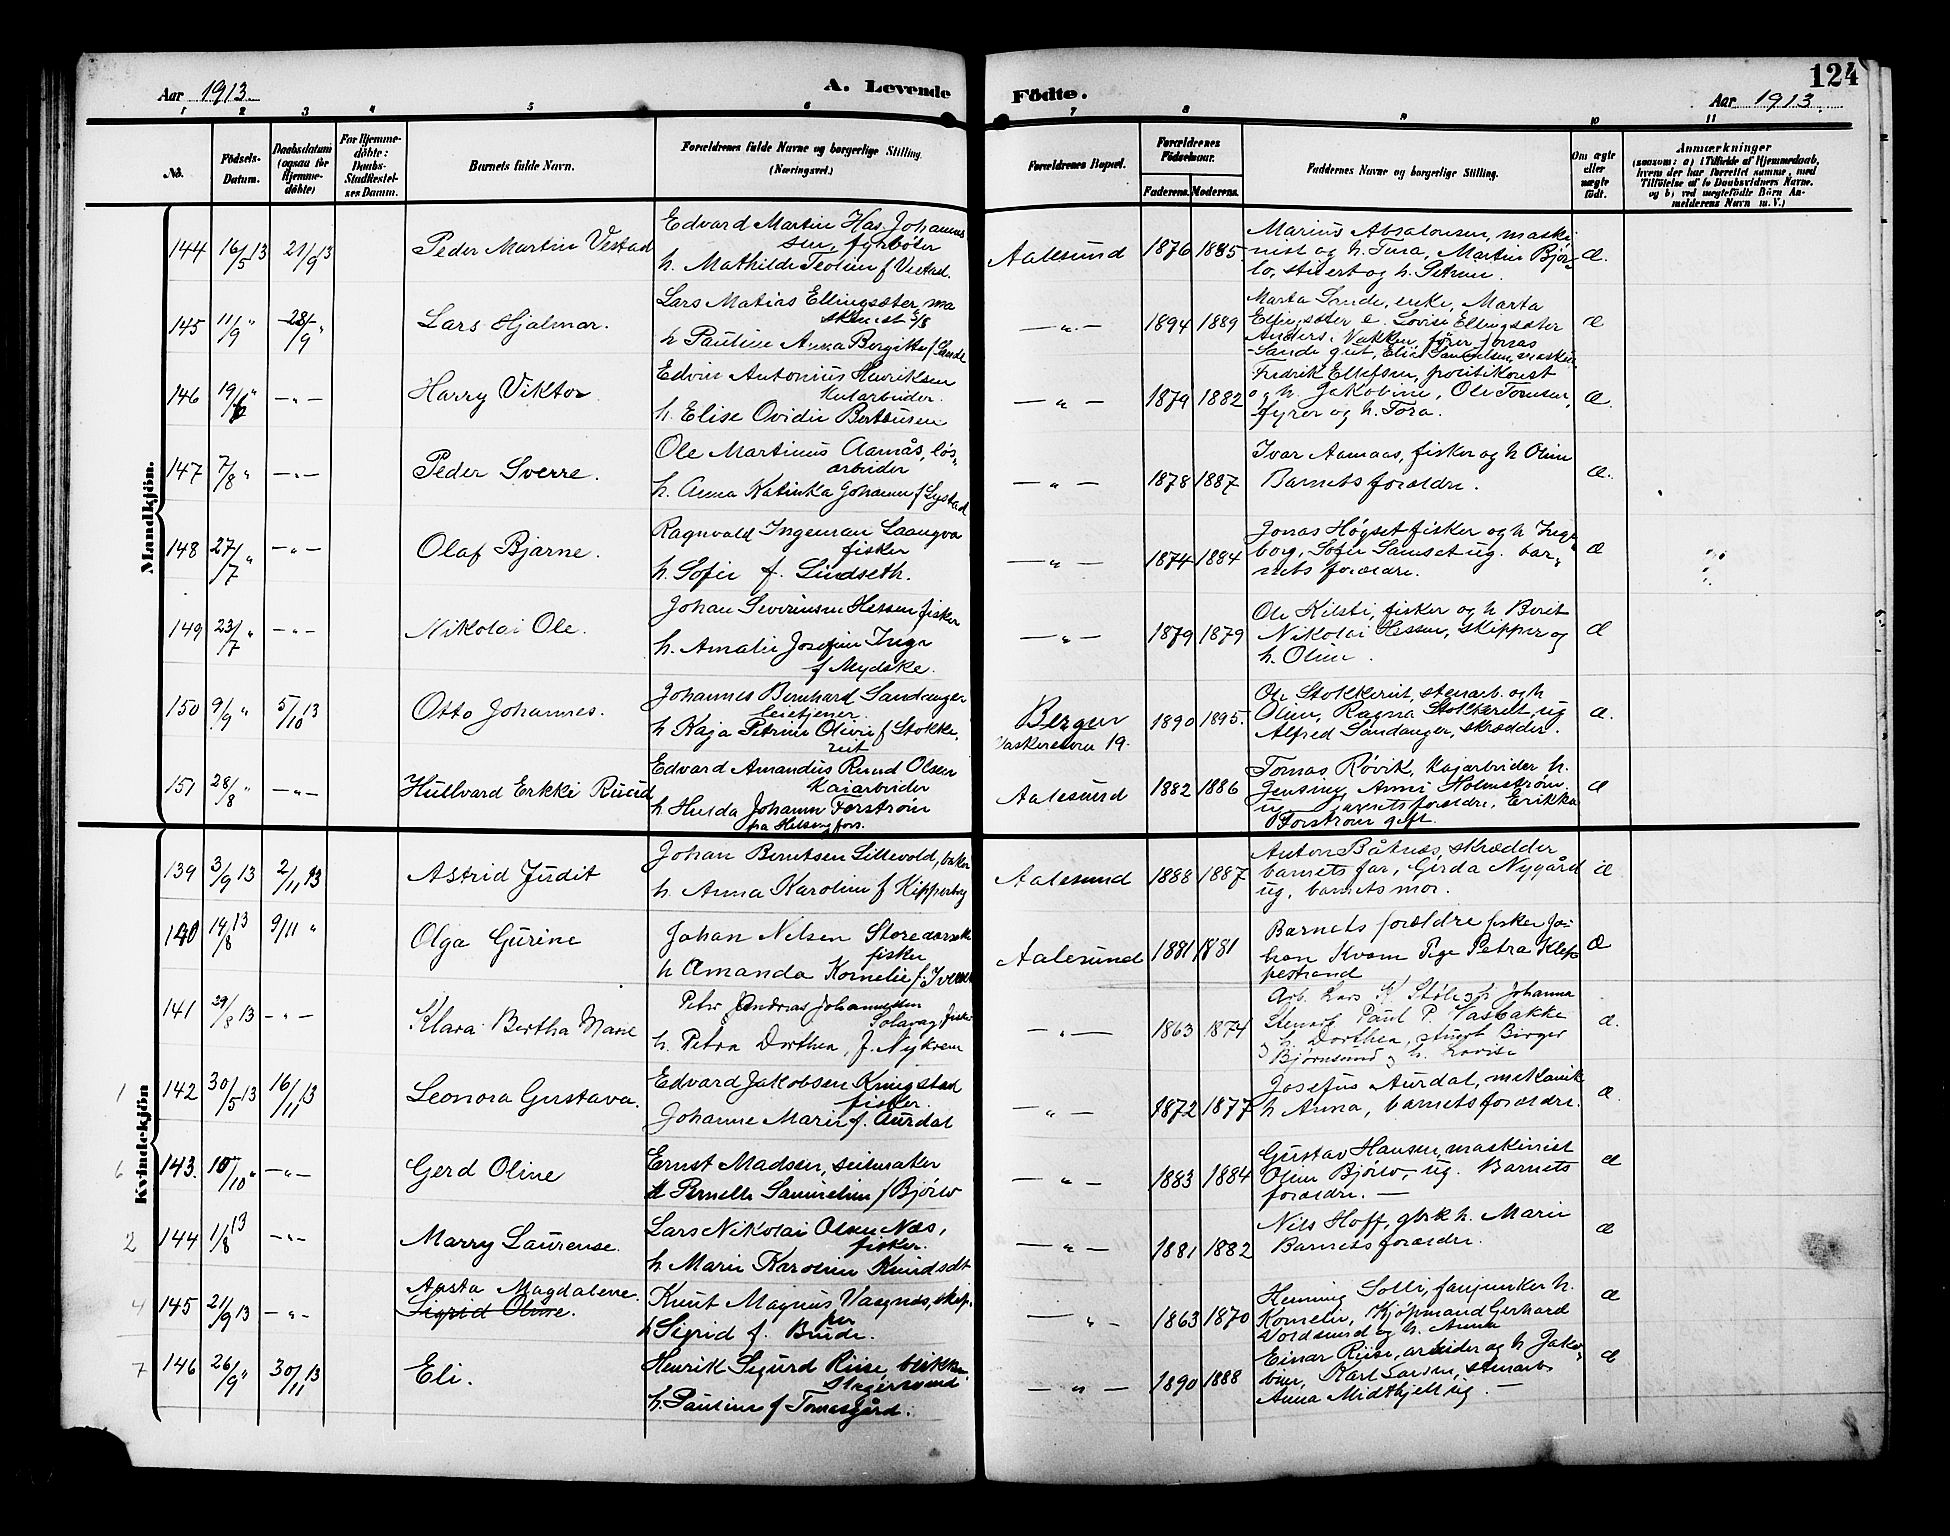 124
Aar 1913.
A. Levende Födte.
Aar 1913.
1 2 3 4 5 6 7 8 9 10 11
No.
Födsels-Datum.
Daabsdatum (ogsaa for Hjemme-döbte)
For Hjemme-döbte: Daabs-Stadfestel-ses Datum.
Barnets fulde Navn.
Forældrenes fulde Navne og borgerlige Stilling. (Næringsvei.)
Forældrenes Bopæl.
Forældrenes Födselsaar.
Faderens. Moderens.
Faddernes Navne og borgerlige Stilling.
Om ægte eller uægte födt.
Anmærkninger
(saasom: a) i Tilfælde af Hjemmedaab, hvem der har forrettet samme, med Tilföielse af to Daabsvidners Navne, og b) ved uægtefödte Börn An-melderens Navn m. V.)
Mandkjön.
144 16/5 13 21/9 13 Peder Martin Vestad
Edvard Martin Johannessen, fyrbøter
h. Mathilde f Vestad.
Aalesund 1876 1885
Marius Absalonsen, maski-
nist og h. Tura, Martin Bjør-
lo, stuert og h. Petrine.
æ.
145 11/9 " 28/9 " Lars Hjalmar.
Lars Matias Ellingsæter, ma
skinist
h Pauline Anna Bergitte f Sande
— " — 1894 1889
Marta Sande, enke, Marta
Ellingsæter e. Lovise Ellingsæter
Anders Vakken, fører Jonas
Sande gut, maskin
æ
146 19/ " — " — Harry Viktor
Edvin Antonius Henriksen
Kularbeider.
h. Elise Ovidie Berntsen
— " — 1879 1882
Fredrik Ellefsen, politikonst
og h. Jakobine, Ole Tomsen,
fyrer og h. Tora.
æ.
147 7/8 " — " — Peder Sverre.
Ole Martinus Aarnås, løs-
arbeider
h. Anna Katinka Johanne f Systad
— " — 1878 1887
Ivar Aamaas, fisker og h Oline
Barnets forældre.
æ.
148 27/7 " — " — Olaf Bjarne.
Ragnvald Ingeman Laangva
fisker
h. Sofie f. Lindseth.
— " — 1874 1884
Jonas Høgset fisker og h Inge-
borg, Sofie Samset ug. bar-
nets forældre.
æ
149 23/7 " — " — Nikolai Ole.
Johan Severinsen Hessen fisker
h. Amalie Josefine Inga
f Mydske.
— " — 1879 1879
Ole Kilsti, fisker og h Berit
Nikolai Hessen, skipper og
h. Oline.
æ
150 9/9 " 5/10 13 Otto Johannes.
Johannes Bernhard Sandanger
leietjener.
h Kaja Petrine Olivie f Stokke
reit
Bergen
19.
1890 1895.
Ole Stokkereit, stenarb. og h
Oline, Ragna Stokkereit, ug
Alfred Sandanger, skrædder.
æ.
151 28/8 " — " — Hullvard Erkki Ruud
Edvard Amandus Ruud Olsen
Kaiarbeider
h Hulda Johanne Forström
fra Helsingfors.
Aalesund 1882 1886
Tomas Røvik, Kajarbeider h.
Jensine, Anni Holmström
ug barnets forældre, Erikka
Forström gift.
æ
Kvindekjön
139 3/9 13 2/11 13 Astrid Judit
Johan Berntsen Sillevold, baker
h Anna Karoline f Kipperberg
Aalesund 1888 1887
Anton Båtnes, skrædder
barnets far, Gerda Nygård
ug, barnets mor.
æ
140 14/8 13 9/11 " Olga Gurine
Johan Nelsen
fisker
h Amanda Kornelie f.
Aalesund 1881 1881
Barnets forældre fisker Jo-
han Kvam Pige Petra Klep
pestrand
æ
141 29/8 13 — " — Klara Bertha Marie
Petr Andreas Johannessen
Solavåg, fisker
h. Petra Dorthea, f. Nykrem
— " — 1863 1874
Arb. Lars K. Støle og h. Johanna
Stenarb Paul P. Vasbakke
og h. Dorthea, stuert Birger
Bjørnsund og h. Lovise
æ.
1 142 30/5 13 16/11 13 Leonora Gustava.
Edvard Jakobsen Kringstad
fisker.
Johanne Marie f. Aurdal
— " — 1872 1877
Josefus Aurdal, mekanik
h Anna, barnets forældre.
æ.
6 143. 10/10 " — " — Gerd Oline
Ernst Madsen, seilmaker
h Pernelle Samueline f Bjørlo
— " — 1883 1884
Gustav Hansen, maskinist
Oline Bjørlo, ug. Barnets
forældre. —
æ
2 144 1/8 13 — " — Marry Laurense.
Lars Nikolai Olsen Næs,
fisker.
h Marie Karoline Knudsdt
— " — 1881 1882
Nils Hoff, gbrk h. Marie
Barnets forældre.
æ
4 145 21/9 13 — " — Aasta Magdalene.
Sigrid Oline.
Knut Magnus Vaagnæs, skip-
per
h Sigrid f. Brude.
— " — 1863 1870
Henning Solli, fanjunker h.
Kornelie, Kjøpmand Gerhard
Voldsund og h. Anna
æ
7 146 26/9 " 30/11 13 Eli.
Henrik Sigurd Riise, blikken
slagersvend
h. Pauline f Tomasgård.
— " — 1890 1888
Einar Riise, arbeider og h Jako-
bine, Karl Larsen, stenarb
Anna Midthjell ug. —
æ